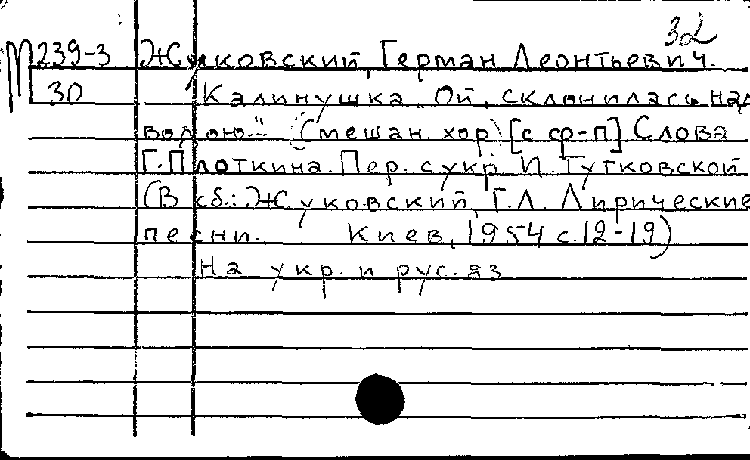 32
М239-3 Жуковский, Герман Леонтьевич.
30 Калинушка. "Ой, склонилась над
водою..." (Смешан. хор) [с ф-п] Слова
Г. Плоткина. Пер. с укр. И. Тутковской
(В сб.: Жуковский, Г.Л. Лирические
песни. Киев, 1954 с. 12-19)
На укр. и рус. яз